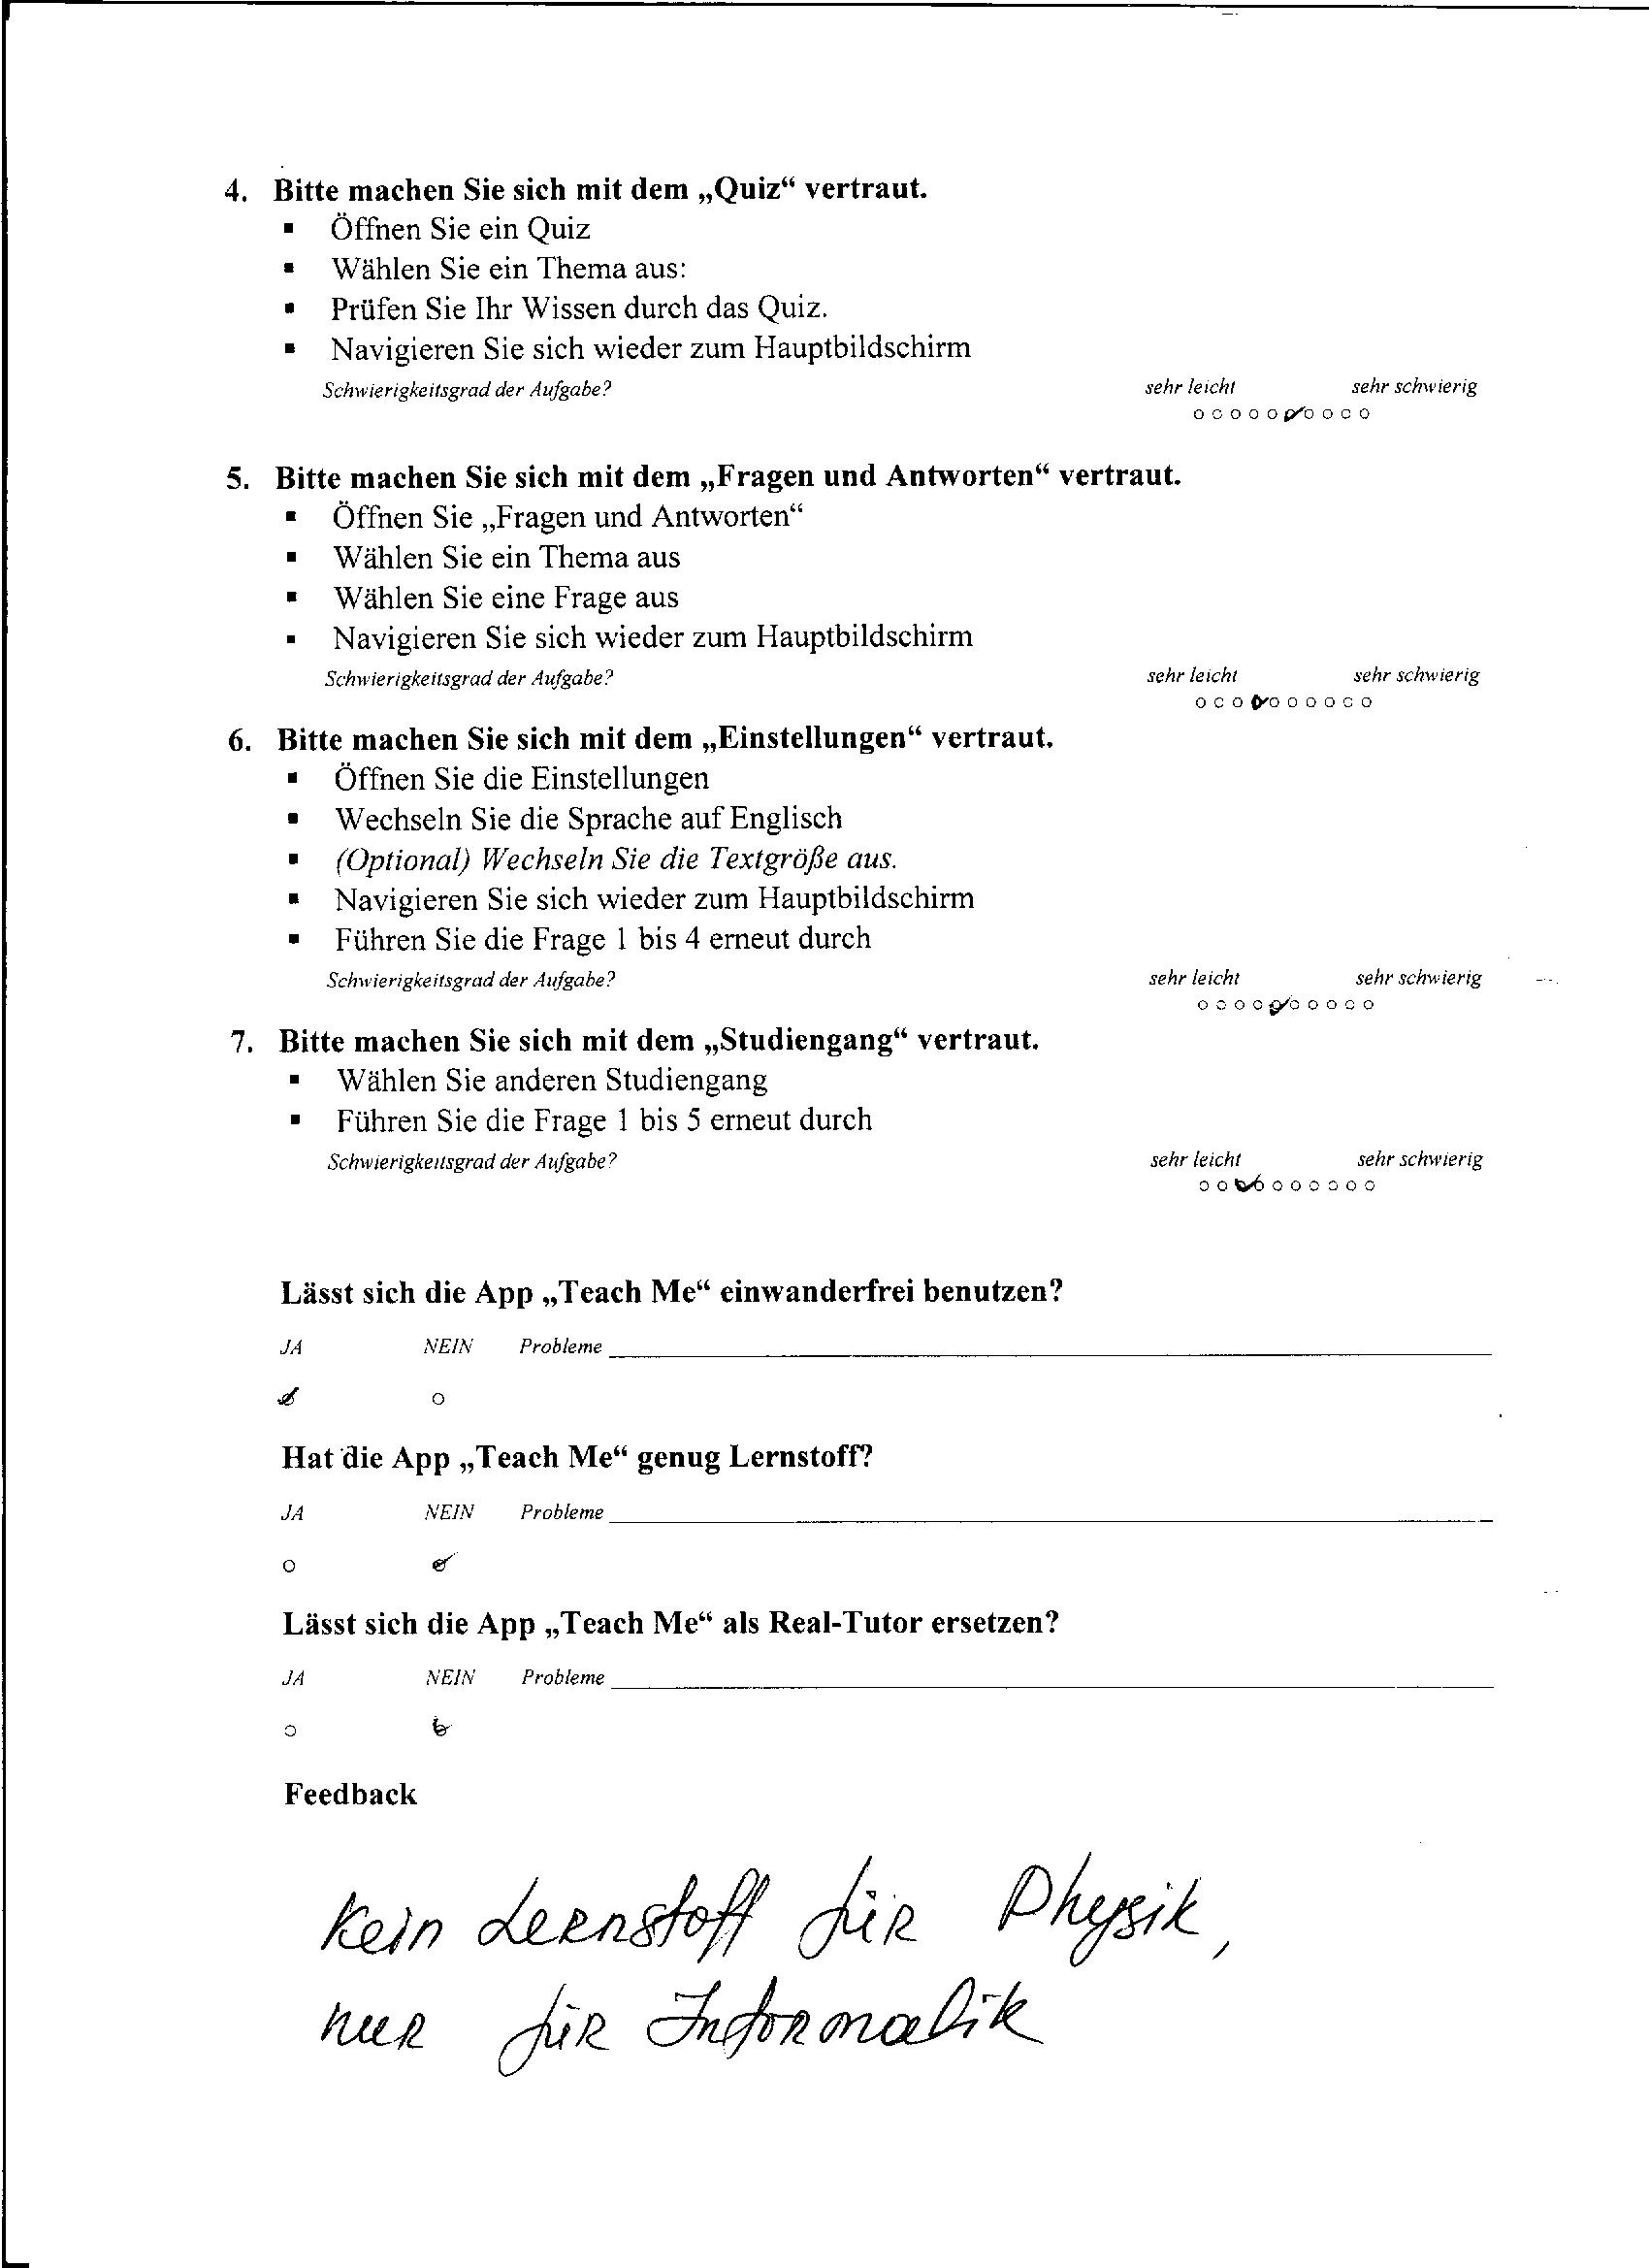 4. Bitte machen Sie sich mit dem „Quiz“ vertraut.
▪ Öffnen Sie ein Quiz
▪ Wählen Sie ein Thema aus:
▪ Prüfen Sie Ihr Wissen durch das Quiz.
▪ Navigieren Sie sich wieder zum Hauptbildschirm
Schwierigkeitsgrad der Aufgabe? sehr leicht sehr schwierig
5. Bitte machen Sie sich mit dem „Fragen und Antworten“ vertraut.
▪ Öffnen Sie „Fragen und Antworten“
▪ Wählen Sie ein Thema aus
▪ Wählen Sie eine Frage aus
▪ Navigieren Sie sich wieder zum Hauptbildschirm
Schwierigkeitsgrad der Aufgabe? sehr leicht sehr schwierig
6. Bitte machen Sie sich mit dem „Einstellungen“ vertraut.
▪ Öffnen Sie die Einstellungen
▪ Wechseln Sie die Sprache auf Englisch
▪ (Optional) Wechseln Sie die Textgröße aus.
▪ Navigieren Sie sich wieder zum Hauptbildschirm
▪ Führen Sie die Frage 1 bis 4 erneut durch
Schwierigkeitsgrad der Aufgabe? sehr leicht sehr schwierig
7. Bitte machen Sie sich mit dem „Studiengang“ vertraut.
▪ Wählen Sie anderen Studiengang
▪ Führen Sie die Frage 1 bis 5 erneut durch
Schwierigkeitsgrad der Aufgabe? sehr leicht sehr schwierig
Lässt sich die App „Teach Me“ einwanderfrei benutzen?
JA NEIN Probleme
Hat die App „Teach Me“ genug Lernstoff?
JA NEIN Probleme
Lässt sich die App „Teach Me“ als Real-Tutor ersetzen?
JA NEIN Probleme
Feedback
Kein Lernstoff für Physik,
nur für Informatik